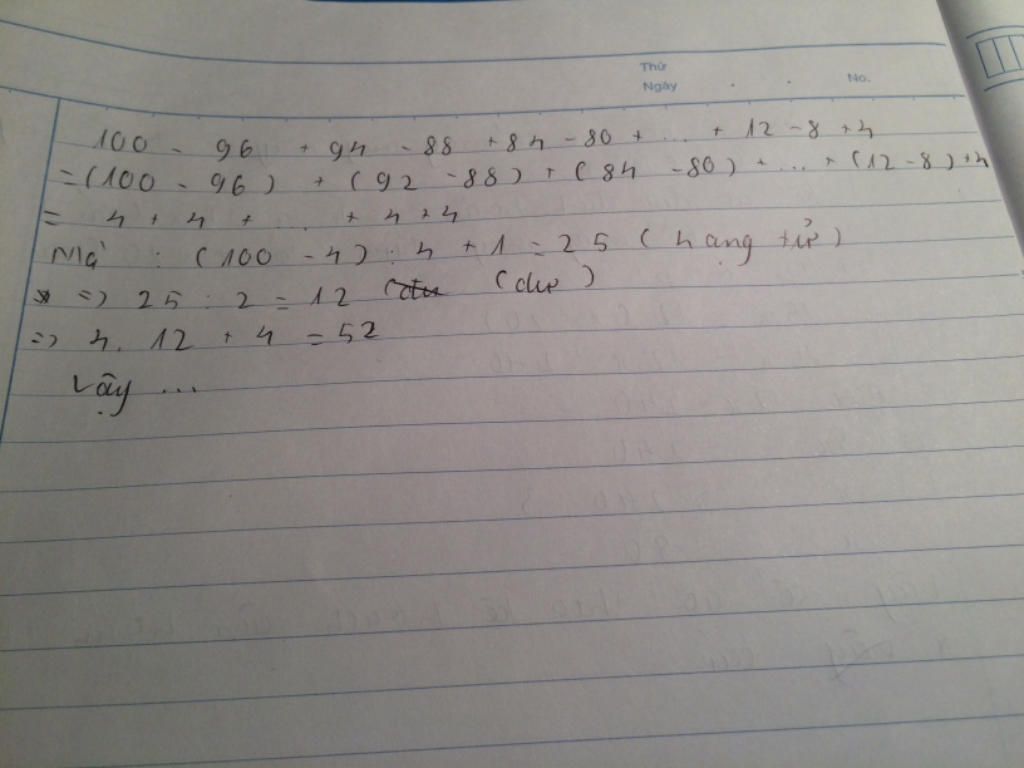 Thứ
Ngày . . No.
100 - 96 + 94 - 88 + 84 - 80 + ... + 12 - 8 + 4
= (100 - 96) + (92 - 88) + (84 - 80) + ... + (12 - 8) + 4
= 4 + 4 + ... + 4 + 4
Mà : (100 - 4) : 4 + 1 = 25 (hạng tử)
=> 25 : 2 = 12 (dư)
=> 4. 12 + 4 = 52
Vậy ...